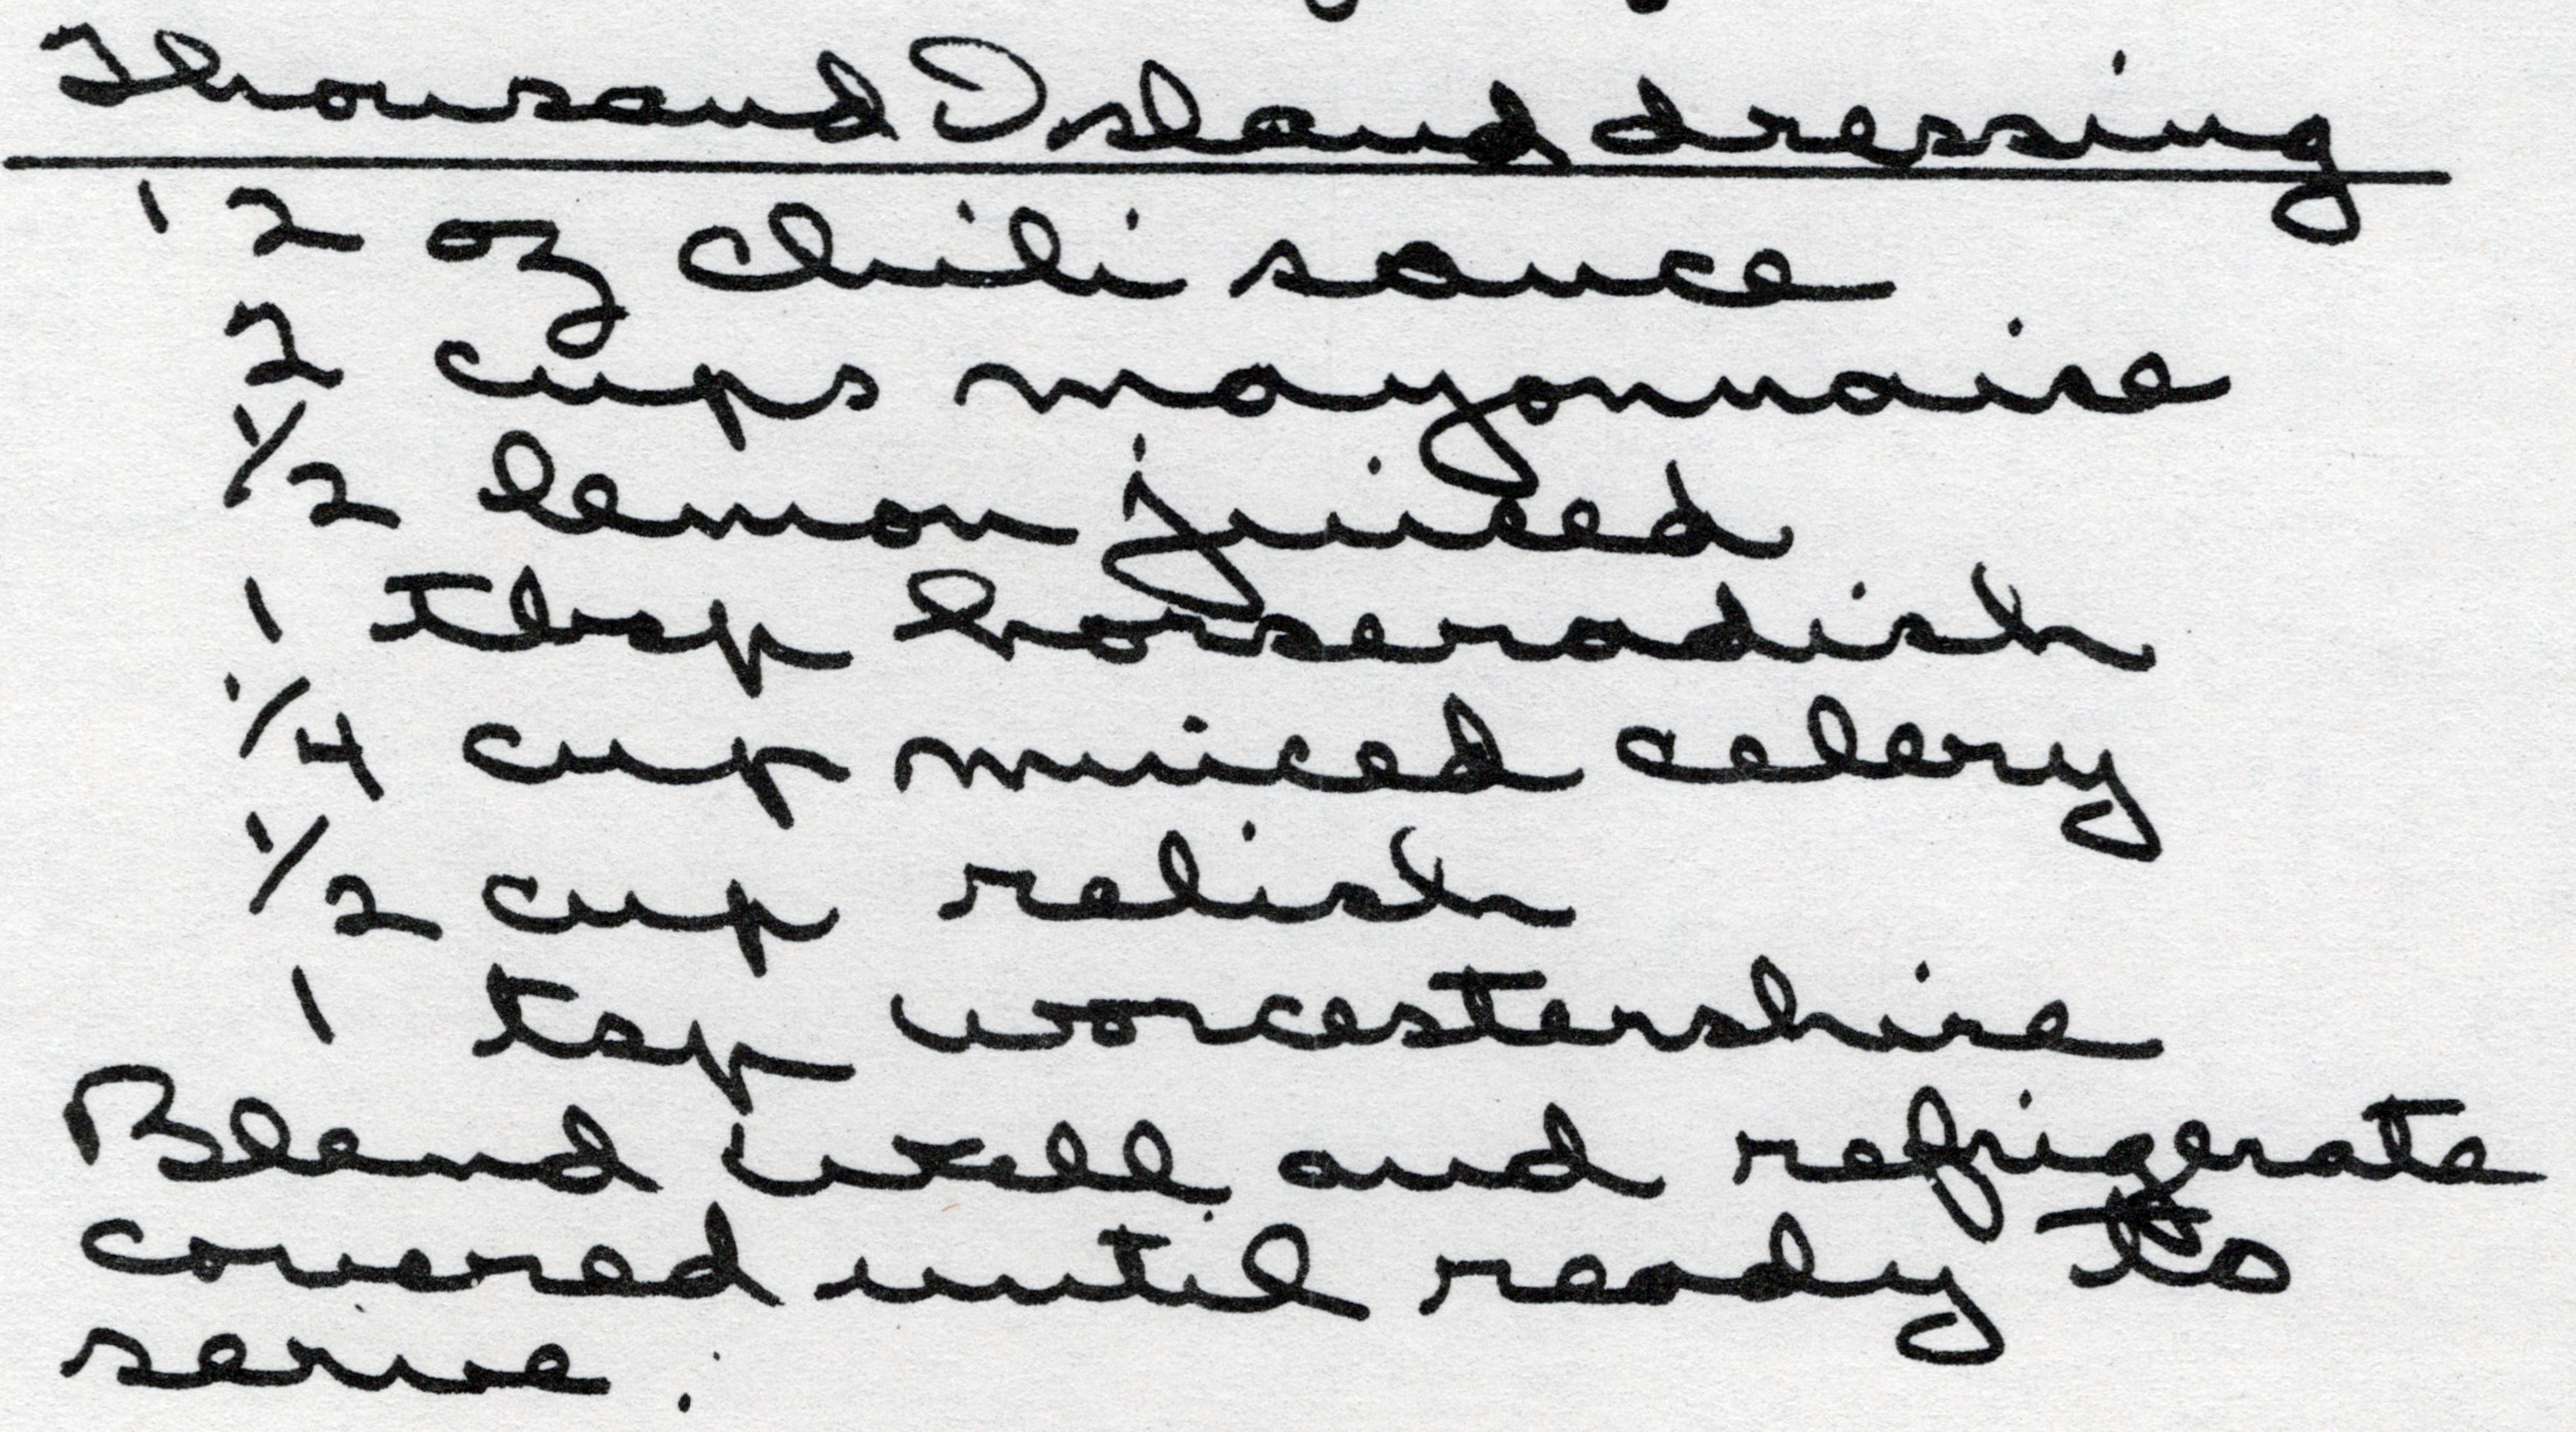 Thousand Island dressing
12 oz chili sauce
2 cups mayonnaise
1/2 lemon juiced
1 Tbsp horseradish
1/4 cup minced celery
1/2 cup relish
1 tsp worcestershire
Blend well and refrigerate
covered until ready to
serve.